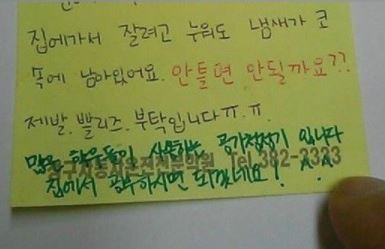 집에가서 잘려고 누워도 냄새가 코
속에 남아있어요. 안틀면 안될까요??
제발. 쁠리즈. 부탁입니다ㅠ.ㅠ.
많은 학우들이 사용하는 공기청정기 입니다
Tel.382-3333
집에서 공부하시면 되겠네요! ^^